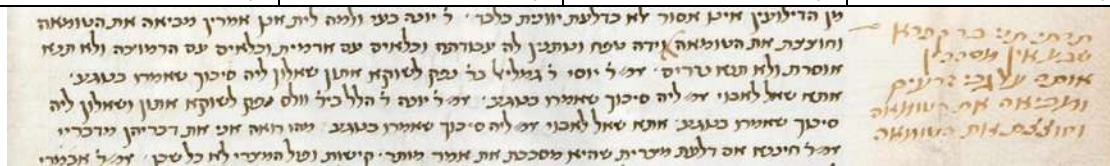 מן הדילועין אינן אסור לא כדלעת יוונית בלבד ר׳ יונה בעי ולמה לית אנן אמרין מביאה את הטומאה
וחוצצת את הטומאה וידה טפח ונותנין לה עבודתה וכלאים עם ארמית וכלאים עם הרמוצה ולא תנא
אוסרת ולא תנא נדרים אמ״ר יוסי ר׳ גמליאל בר׳ נפק לשוקא אתון שאלון ליה סיכוך שאמרו בטוגע
אתא שאל לאבוי אמ׳ ליה סיכוך שאמרו בטוגע אמ״ר יונה ר׳ הלל ביר׳ וולס נפק לשוקא אתון ושאלון ליה
סיכוך שאמרו בטוגע אתא שאל לאבוי אמ׳ ליה סיכוך שאמרו בטוגע מהו רואה אני את דבריהן מדבריי
אמ״ר חיננא אם דלעת מצרית שהיא מסככת את אמר מותר קישות ופול המצרי לא כל שכן אמ״ר אבמרי
תנתי תני בר קפרא
שבע אין מסככין
אותם על גבי זרעים
ומביאה את הטומאה
וחוצצת את הטומאה